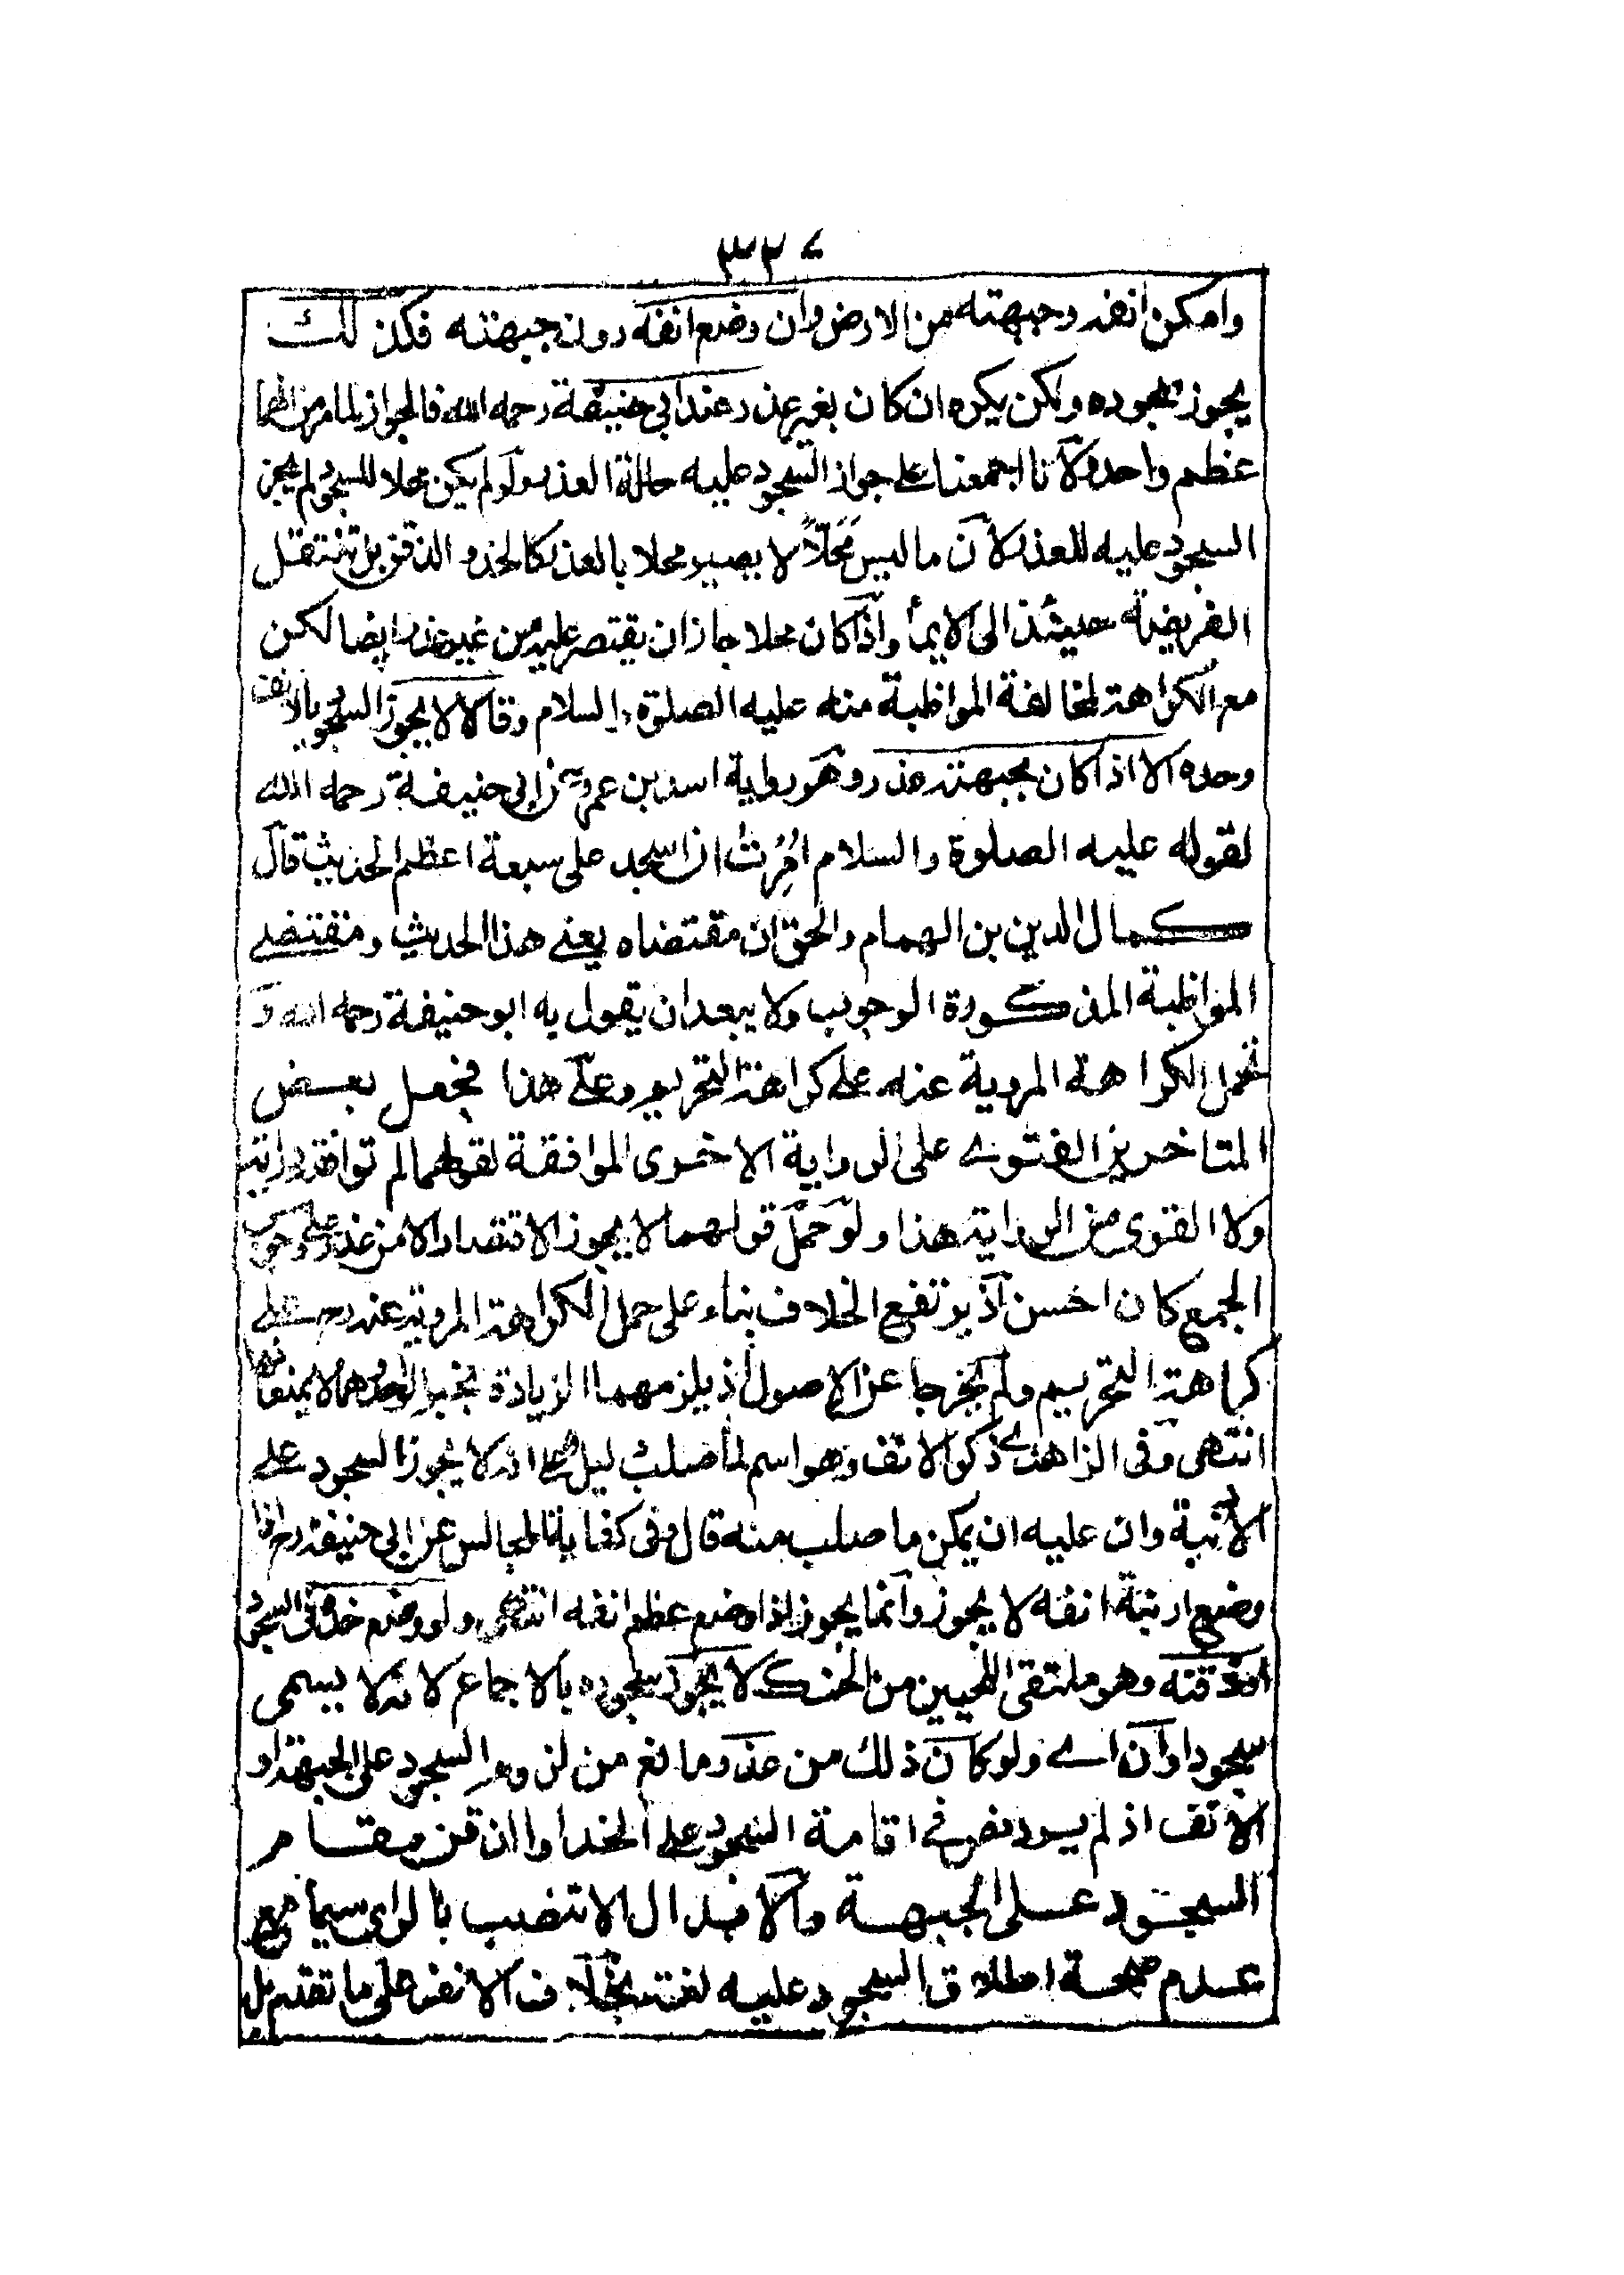 ٣٣٤
وامكن انفه وجبهته من الارض وان وضع انفه دون جبهته فكذلك
يجوز سجوده ولكن يكره ان كان بغير عذر عند ابي حنيفة رحمه الله فالجواز لما مر من انهما
عظم واحد ولانا اجمعنا على جواز السجود عليه حالة العذر ولو لم يكن محلا للسجود لم يجز
السجود عليه للعذر لان ما ليس مَحَلّاً لا يصير محلا بالعذر كالخد والذقن بل تنتقل
الفريضة حينئذ الى الايمأ واذا كان محلا جاز ان يقتصر عليه من غير عذر ايضا لكن
مع الكراهة لمخالفة المواظبة منه عليه الصلوة والسلام وقالا لا يجوز السجود بالانف
وحده الا اذا كان بجبهته عذر وهو رواية اسد بن عمرو عن ابي حنيفة رحمه الله
لقوله عليه الصلوة والسلام اُمِرْتُ ان اسجد على سبعة اعظم الحديث قال
كمال الدين بن الهمام والحق ان مقتضاه يعنى هذا الحديث ومقتضى
المواظبة المذكورة الوجوب ولا يبعد ان يقول به ابو حنيفة رحمه الله و
تحمل الكراهة المروية عنه على كراهة التحريم وعلى هذا فجعل بعض
المتاخرين الفتوى على الرواية الاخرى الموافقة لقولهما لم توافقه دراية
ولا القوى من الرواية هذا ولو حمل قولهما لا يجوز الاقتصار الا من عذر على وجوب
الجمع كان احسن اذ يرتفع الخلاف بناء على حمل الكراهة المروية عنه رح على
كراهة التحريم ولم يخرجا عن الاصول اذ يلزمهما الزيادة بخبر الواحد وهما لا يمنعانها
انتهى وفى الزاهدى ذكر الانف وهو اسم لما صلب دليل على انه لا يجوز السجود على
الارنبة وان عليه ان يمكن ما صلب منه قال وفى كفاية المجالس عن ابي حنيفة رح اذا
وضع ارنبة انفه لا يجوز وانما يجوز اذا وضع عظم انفه انتهى ولو وضع خده فى السجود
او ذقنه وهو ملتقى اللحيين من الحنك لا يجوز سجوده بالاجماع لانه لا يسمى
سجودا وان اى ولو كان ذلك من عذر ومانع من لزوم السجود على الجبهة او
الانف اذ لم يرد نص فى اقامة السجود على الخد او الذقن مقام
السجود على الجبهة والابدال لا تنصب بالراى سيما مع
عدم صحة اطلاق السجود عليه لغة بخلاف الانف على ما تقدم بل